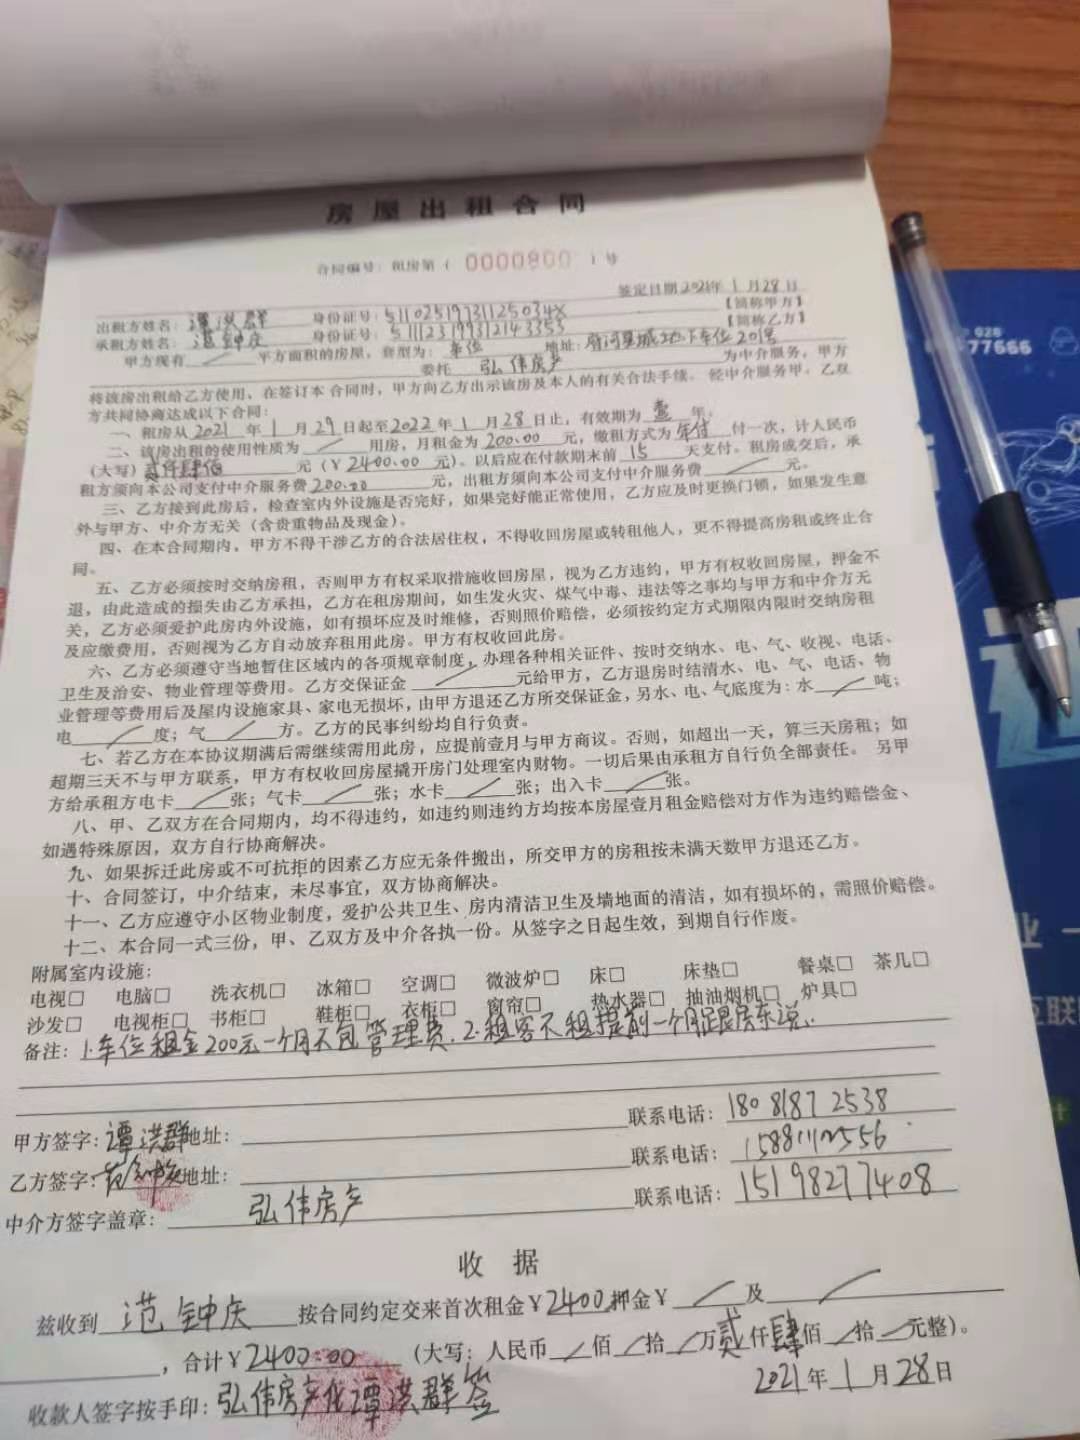 房屋出租合同
合同编号：租房第（0000800）号
签定日期2021年1月28日
出租方姓名：谭洪群 身份证号：51102519731125034X 【简称甲方】
承租方姓名：范钟庆 身份证号：511123199312143353 【简称乙方】
甲方现有 平方面积的房屋，套型为：车位 地址：府河星城地下车位201号
委托 弘伟房产 为中介服务，甲方
将该房出租给乙方使用，在签订本合同时，甲方向乙方出示该房及本人的有关合法手续。经中介服务甲、乙双
方共同协商达成以下合同：
一、租房从2021年1月29日起至2022年1月28日止，有效期为壹年。
二、该房出租的使用性质为 用房，月租金为200.00元，缴租方式为年付付一次，计人民币
（大写）贰仟肆佰元（￥2400.00元）。以后应在付款期末前15天支付。租房成交后，承
租方须向本公司支付中介服务费200.00元，出租方须向本公司支付中介服务费 元。
三、乙方接到此房后，检查室内外设施是否完好，如果完好能正常使用，乙方应及时更换门锁，如果发生意
外与甲方、中介方无关（含贵重物品及现金）。
四、在本合同期内，甲方不得干涉乙方的合法居住权，不得收回房屋或转租他人，更不得提高房租或终止合
同。
五、乙方必须按时交纳房租，否则甲方有权采取措施收回房屋，视为乙方违约，甲方有权收回房屋，押金不
退，由此造成的损失由乙方承担，乙方在租房期间，如生发火灾、煤气中毒、违法等之事均与甲方和中介方无
关，乙方必须爱护此房内外设施，如有损坏应及时维修，否则照价赔偿，必须按约定方式期限内限时交纳房租
及应缴费用，否则视为乙方自动放弃租用此房。甲方有权收回此房。
六、乙方必须遵守当地暂住区域内的各项规章制度，办理各种相关证件、按时交纳水、电、气、收视、电话、
卫生及治安、物业管理等费用。乙方交保证金 元给甲方，乙方退房时结清水、电、气、电话、物
业管理等费用后及屋内设施家具、家电无损坏，由甲方退还乙方所交保证金，另水、电、气底度为：水 吨；
电 度；气 方。乙方的民事纠纷均自行负责。
七、若乙方在本协议期满后需继续需用此房，应提前壹月与甲方商议。否则，如超出一天，算三天房租；如
超期三天不与甲方联系，甲方有权收回房屋撬开房门处理室内财物。一切后果由承租方自行负全部责任。 另甲
方给承租方电卡 张；气卡 张；水卡 张；出入卡 张。
八、甲、乙双方在合同期内，均不得违约，如违约则违约方均按本房屋壹月租金赔偿对方作为违约赔偿金、
如遇特殊原因，双方自行协商解决。
九、如果拆迁此房或不可抗拒的因素乙方应无条件搬出，所交甲方的房租按未满天数甲方退还乙方。
十、合同签订，中介结束，未尽事宜，双方协商解决。
十一、乙方应遵守小区物业制度，爱护公共卫生、房内清洁卫生及墙地面的清洁，如有损坏的，需照价赔偿。
十二、本合同一式三份，甲、乙双方及中介各执一份。从签字之日起生效，到期自行作废。
附属室内设施：
电视□ 电脑□ 洗衣机□ 冰箱□ 空调□ 微波炉□ 床□ 床垫□ 餐桌□ 茶几□
沙发□ 电视柜□ 书柜□ 鞋柜□ 衣柜□ 窗帘□ 热水器□ 抽油烟机□ 炉具□
备注：1.车位租金200元一个月不包管理费.2.租客不租提前一个月跟房东说.
甲方签字：谭洪群 地址： 联系电话：18081872538
乙方签字：范钟庆 地址： 联系电话：15881112556
中介方签字盖章： 弘伟房产 联系电话：15198277408
收 据
兹收到 范钟庆 按合同约定交来首次租金￥2400押金￥ 及
，合计￥2400.00（大写：人民币 佰 拾 万贰仟肆佰 拾 元整）。
收款人签字按手印：弘伟房产代谭洪群签 2021年1月28日
028
77666
互联